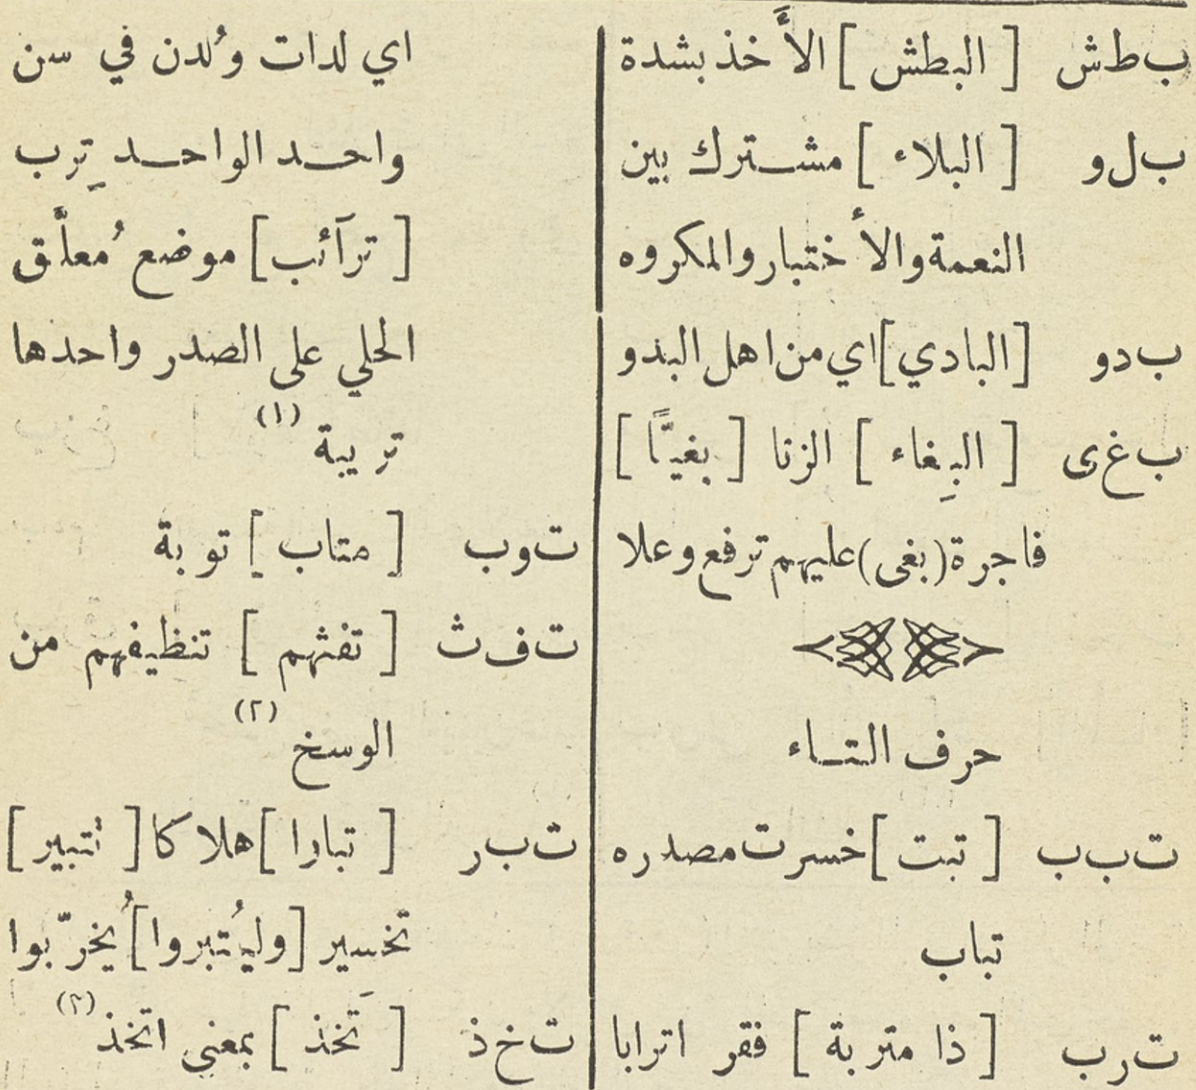 ب ط ش [ البطش ] الأَخذ بشدة
ب ل و [ البلاء ] مشترك بين
النعمة والأختبار والمكروه
ب د و [البادي] اي من اهل البدو
ب غ ى [ البِغاء ] الزنا [ بغيًّا ]
فاجرة (بغى) عليهم ترفع وعلا
حرف التاء
ت ب ب [ تبت ] خسرت مصدره
تباب
ت ر ب [ ذا متربة ] فقر اترابا
اي لدات وُلدن في سن
واحد الواحد تِرب
[ ترآئب ] موضع مُعلَّق
الحلي على الصدر واحدها
تريبة (١)
ت و ب [ متاب ] توبة
ت ف ث [ تفثهم ] تنظيفهم من
الوسخ (٢)
ت ب ر [ تبارا ] هلاكا [ تتبير ]
تخسير [وليُتبروا] يُخرّبوا
ت خ ذ [ تَخذ ] بمعنى اتخذ (٣)